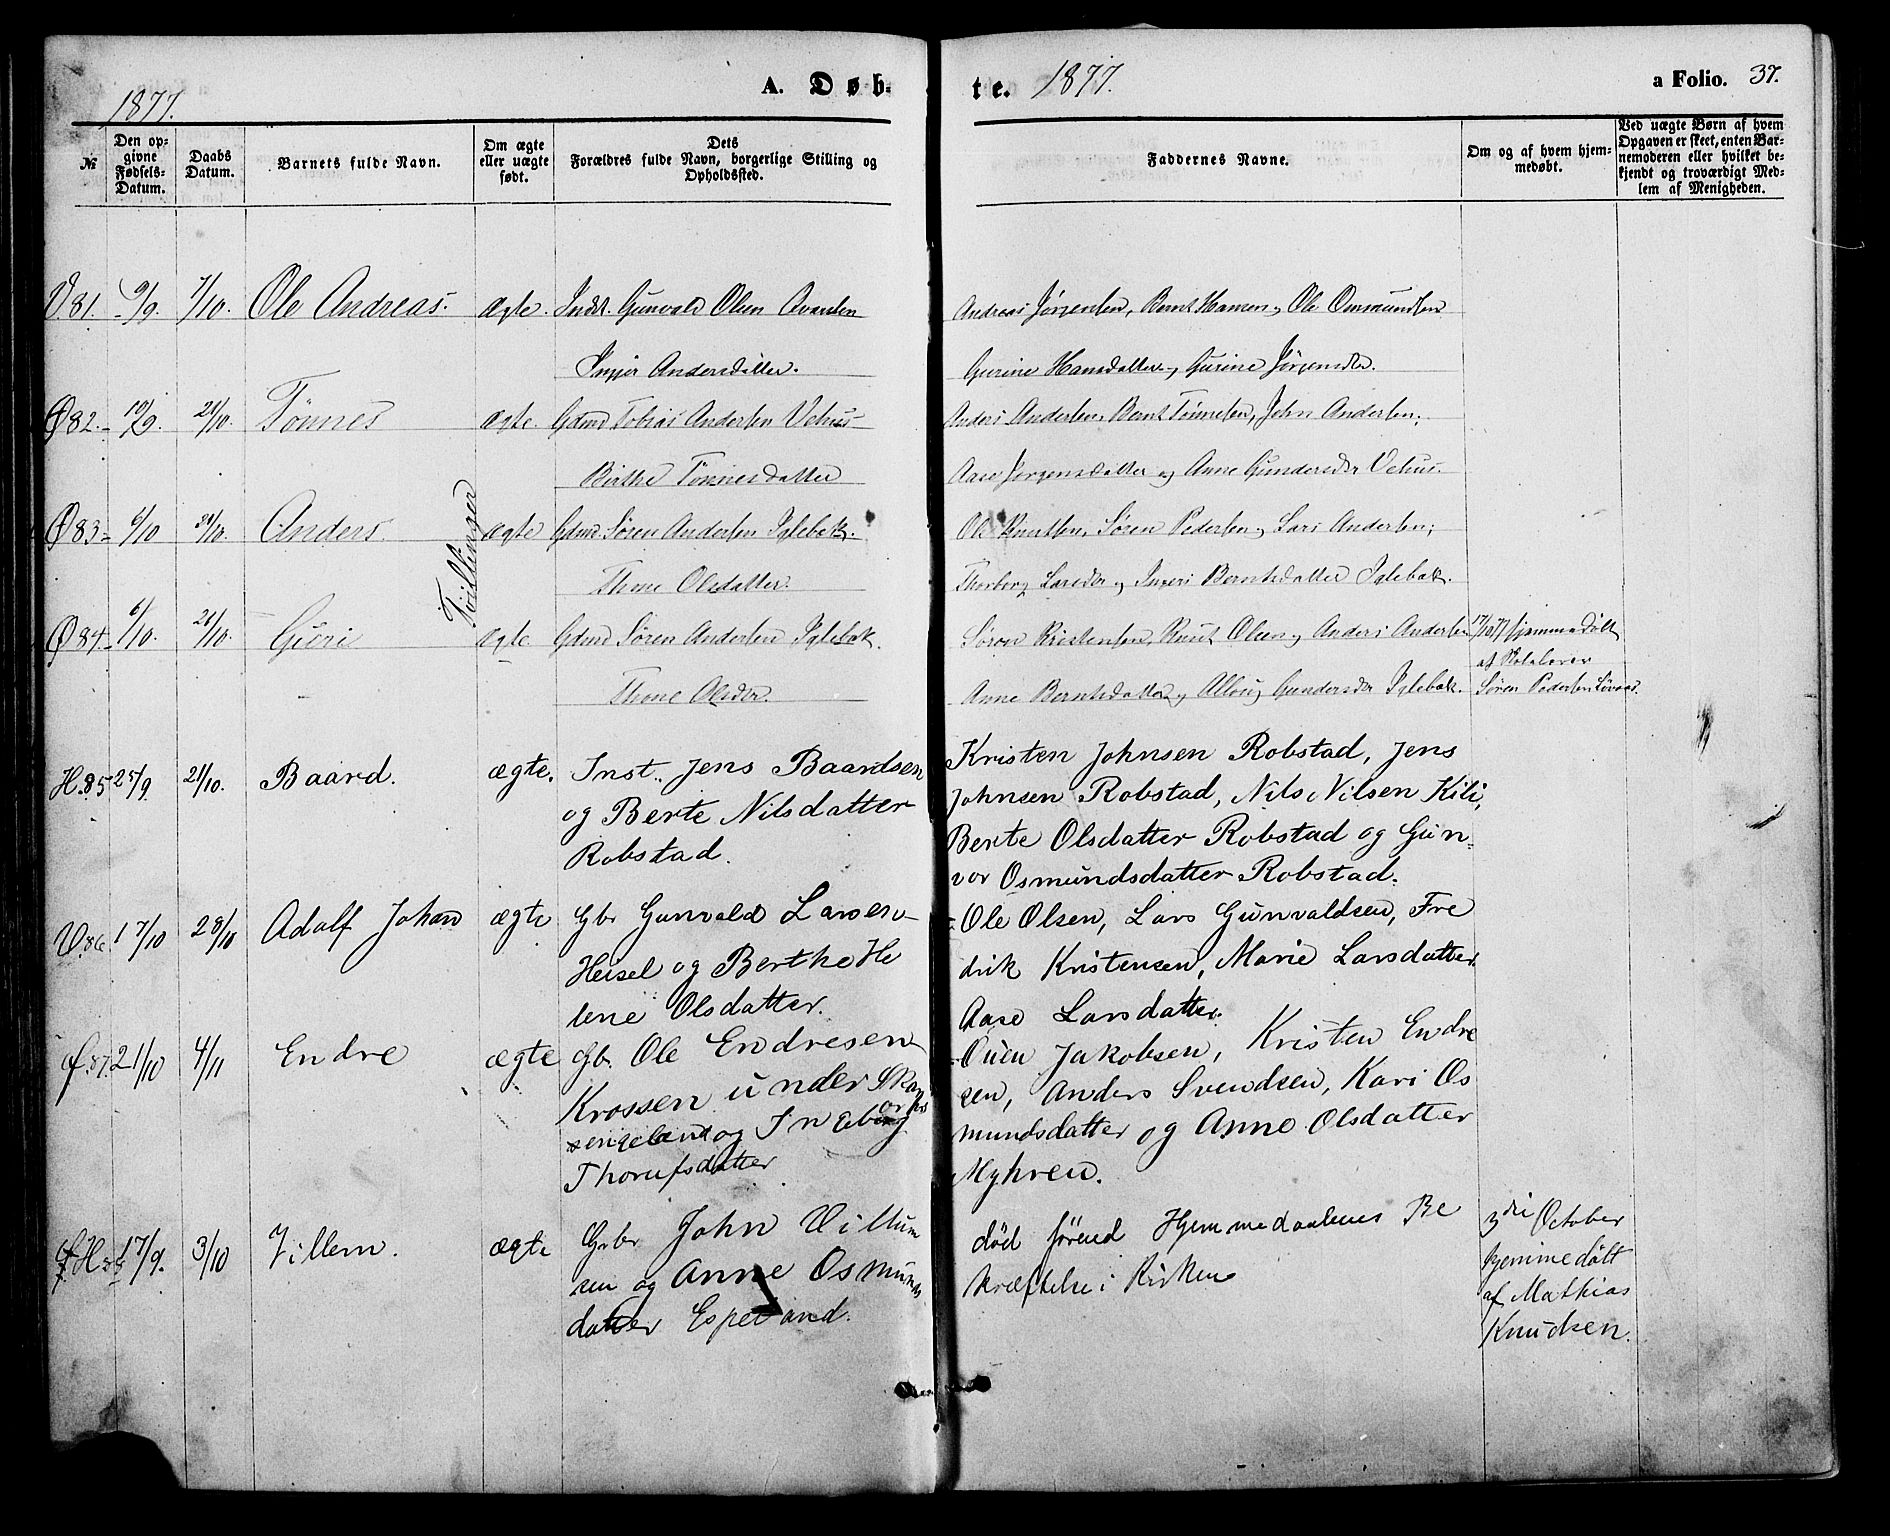 1877.
A. Døb-
te. 1877.
a Folio. 37.
№
Den op-
givne
Fødsels-
Datum.
Daabs
Datum.
Barnets fulde Navn.
Om ægte
eller uægte
født.
Dets
Forældres fulde Navn, borgerlige Stilling og
Opholdssted.
Faddernes Navne.
Om og af hvem hjem-
medøbt.
Ved uægte Børn af hvem
Opgaven er skeet, enten Bar-
nemoderen eller hvilket be-
kjendt og troværdigt Med-
lem af Menigheden.
V.81. 9/9. 7/10. Ole Andreas. ægte. Indst. Gunvald Olsen
Andersdatter.
Andreas Jørgensen, Bernt Hansen, Ole Ommundsen
Gurine Hansdatter, Gurine Jørgensdtr.
Ø82. 10/9. 21/10. Tönnes ægte. Gdmd Tobias Andersen Vehus
Birthe Tönnesdatter
Anders Andersen, Bernt Tönnesen, John Andersen,
Aase Jørgensdatter og Anne Gundersdtr Vehus
Tvillinger
Ø83 6/10 21/10. Anders ægte Gdmd. Søren Andersen Iglebæk.
Thone Olsdatter.
Ole Knutsen, Søren Pedersen, Lars Andersen,
Thorborg Larsdtr og Ingeri Berntsdatter Iglebæk.
Ø84. 6/10. 21/10. Guri ægte Gdmd Søren Andersen Iglebæk.
Thone Olsdtr.
Søren Kristensen, Knut Olsen og Anders Andersen
Anne Berntsdatter, Gundersdtr Iglebæk.
17/10 77 hjemmedöbt
af Skolelærer
Søren Pedersen
H.85 25/9. 21/10. Baard. ægte. Inst. Jens Baardsen
og Berte Nilsdatter
Robstad.
Kristen Johnsen Robstad, Jens
Johnsen Robstad, Nils Nilsen Kili,
Berte Olsdatter Robstad og Gun-
vor Osmundsdatter Robstad.
V.86. 17/10 28/10 Adolf Johan ægte Gbr Gunvald Larsen
Heisel og Berthe He
lene Olsdatter.
Ole Olsen, Lars Gunvaldsen, Fre
drik Kristensen, Marie Larsdatter.
Aase Larsdatter.
Ø.87. 21/10 4/11 Endre ægte Gb. Ole Endresen
Krossen under
og Ingeborg
Thorufsdatter
Ouen Jakobsen, Kristen Endre
sen, Anders Svendsen, Kari Os
mundsdatter og Anne Olsdatter
Myhren.
H 88 17/9. 3/10 Villem. ægte Grbr John Villum
sen og Anne Osmunds
datter Espetvand.
død førend Hjemmedaabens Be
kræftelse i Kirken
3die October
hjemmedöbt
af Mathias
Knudsen.